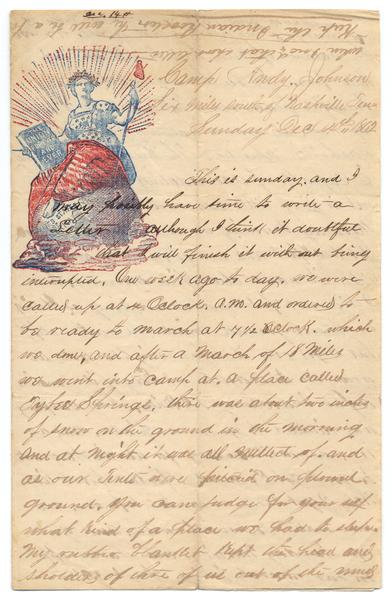 Camp Andy Johnson
Six miles south of Nashville Tenn
Sunday Dec 14th 1862
This is sunday, and I
may possibly have time to write a
Letter although I think it doubtful
that I will finish it with out being
interupted. One week ago to day, we were
called up at 4 Oclock. A.M. and ordered to
be ready to march at 7½ Oclock. which
we done, and after a March of 18 Miles
we went into camp at. a place called
Tyree Springs, there was about two inches
of snow on the ground in the morning
and at night it was all melted of. and
as our Tents were pitched on
ground, you can judge for your self
what kind of a place we had to sleep.
My rubber Blanket kept the head and
sholders of three of us out of the mud